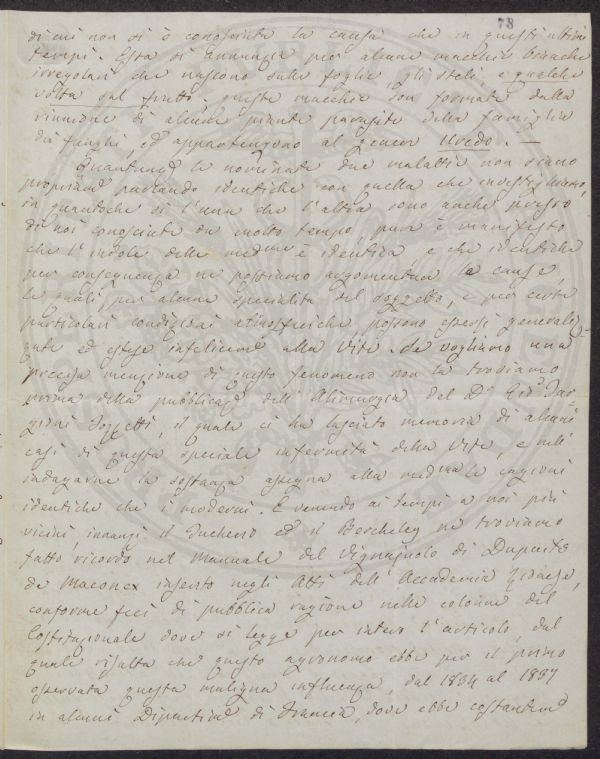 78
di cui non si è conosciuta la causa che in questi ultimi
tempi. Essa si annunzia per alcune macchie bianche
irregolari che nascono sulle foglie, gli steli e qualche
volta sul frutti, queste macchie son formate dalla
riunione di alcune piante parasite della famiglia
dei funghi, ed appartengono al genere Uredo. —
Quantunq le nominate due malattie non siano
propriam parlando identiche con quella che investighiamo,
in quantoche sì l'una che l'altra sono anche presso
di noi conosciute da molto tempo, pure è manifesto
che l'indole delle medme è identica, e che identiche
per conseguenza ne possiamo argomentare la cause,
le quali per alcune specialità del soggetto, e per certe
particolari condizioni atmosferiche possono essersi generaliz-
zate ed estese infelicem alla Vite. Se vogliamo una
precisa menzione di questo fenomeno non la troviamo
prima della pubblicaz dell'Alimurgia del Dr Gio Tar-
gioni Tozzetti, il quale ci ha lasciato memoria di alcuni
casi di questa speciale infermità della Vite, e nell'
indagarne la sostanza assegna alla medma le cagioni
identiche che i moderni. E venendo ai tempi a noi più
vicini, innanzi il Tuchero ed il Bercheley ne troviamo
fatto ricordo nel Manuale del Vignagnolo di Dupuits
de Maconex inserto negli Atti dell'Accademia
conforme feci di pubblica ragione nelle colonne del
Costituzionale dove si legge per intero l'articolo, dal
quale risulta che questo agronomo ebbe per il primo
osservata questa maligna influenza, dal 1834 al 1837
in alcuni Dipartim di Francia, dove ebbe costantem